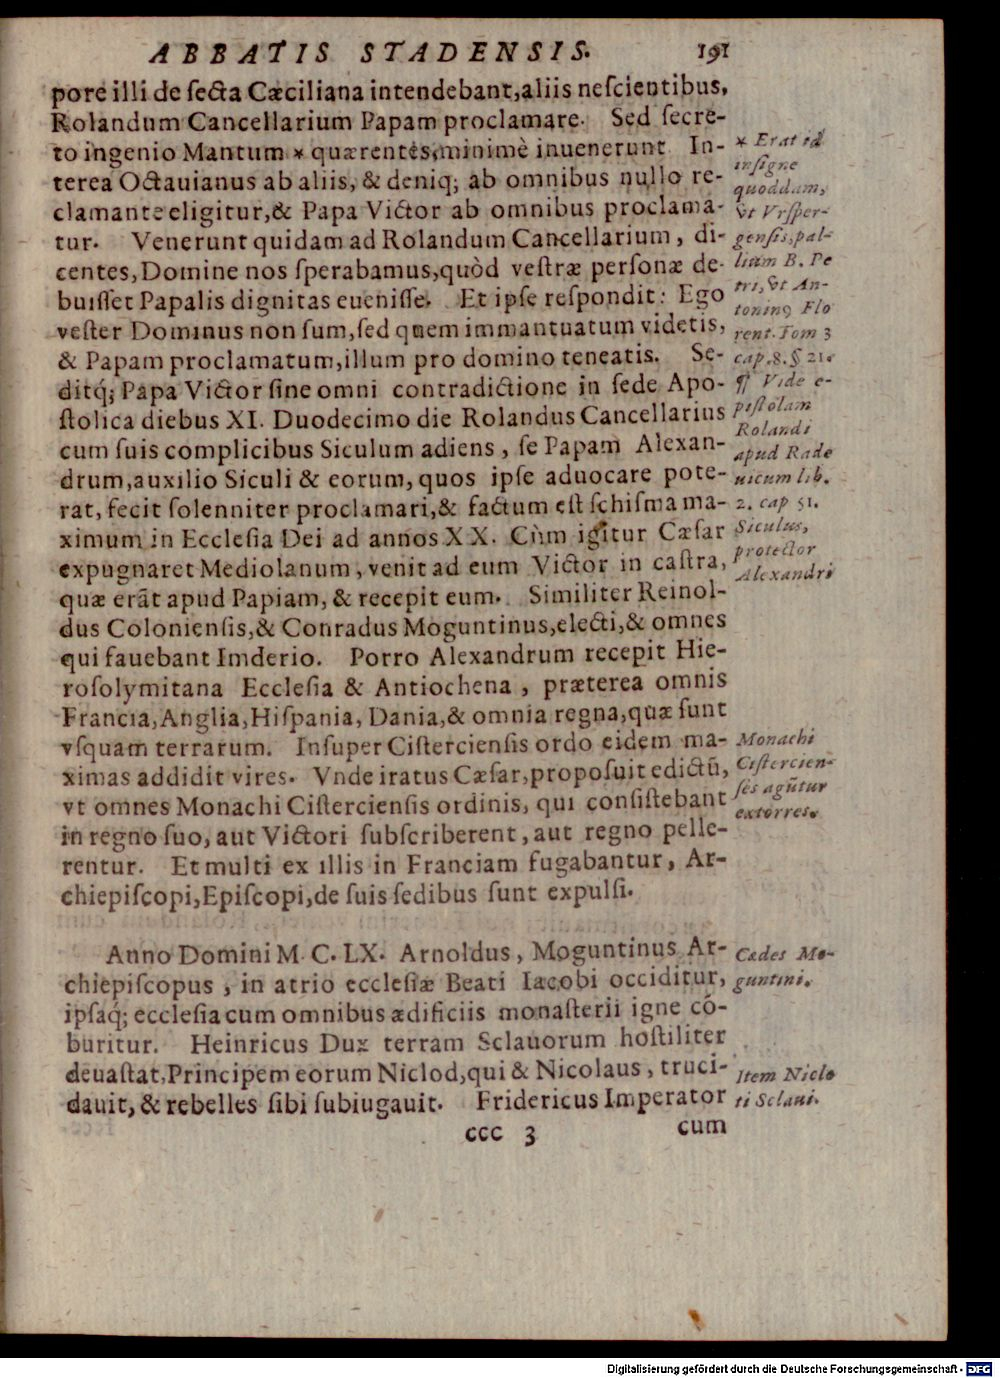 ABBATIS STADENSIS. 191
pore illi de ſecta Cæciliana intendebant,aliis neſcientibus,
Rolandum Cancellarium Papam proclamare. Sed ſecre-
to ingenio Mantum * quærentes,minimè inuenerunt In-
terea Octauianus ab aliis, & deniq; ab omnibus nullo re-
clamante eligitur,& Papa Victor ab omnibus proclama-
tur. Venerunt quidam ad Rolandum Cancellarium, di-
centes,Domine nos ſperabamus,quòd veſtræ perſonæ de-
buiſſet Papalis dignitas eueniſſe. Et ipſe reſpondit: Ego
veſter Dominus non ſum,ſed quem immantuatum videtis,
& Papam proclamatum,illum pro domino teneatis. Se-
ditq́; Papa Victor ſine omni contradictione in ſede Apo-
ſtolica diebus XI. Duodecimo die Rolandus Cancellarius
cum ſuis complicibus Siculum adiens, ſe Papam Alexan-
drum,auxilio Siculi & eorum, quos ipſe aduocare pote-
rat, fecit ſolenniter proclamari,& factum eſt ſchiſma ma-
ximum in Eccleſia Dei ad annos XX. Cùm igitur Cæſar
expugnaret Mediolanum, venit ad eum Victor in caſtra,
quæ erãt apud Papiam, & recepit eum. Similiter Reinol-
dus Colonienſis,& Conradus Moguntinus,electi,& omnes
qui fauebant Imderio. Porro Alexandrum recepit Hie-
roſolymitana Eccleſia & Antiochena, præterea omnis
Francia,Anglia,Hiſpania, Dania,& omnia regna,quæ ſunt
vſquam terrarum. Inſuper Ciſtercienſis ordo eidem ma-
ximas addidit vires. Vnde iratus Cæſar,propoſuit edictũ,
vt omnes Monachi Ciſtercienſis ordinis, qui conſiſtebant
in regno ſuo, aut Victori ſubſcriberent, aut regno pelle-
rentur. Et multi ex illis in Franciam fugabantur, Ar-
chiepiſcopi,Epiſcopi,de ſuis ſedibus ſunt expulſi.
Anno Domini M. C. LX. Arnoldus, Moguntinus Ar-
chiepiſcopus, in atrio eccleſiæ Beati Iacobi occiditur,
ipſaq́; eccleſia cum omnibus ædificiis monaſterii igne cõ-
buritur. Heinricus Dux terram Sclauorum hoſtiliter
deuaſtat,Principem eorum Niclod,qui & Nicolaus, truci-
dauit, & rebelles ſibi ſubiugauit. Fridericus Imperator
ccc 3 cum
* Erat id
inſigne
quoddam,
vt Vrſper-
genſis,pal-
lium B. Pe
tri,vt An-
toninꝰ Flo
rent. Tom 3
cap.8. § 21.
¶ Vide e-
piſtolam
Rolandi
apud Rade
uicum lib.
2. cap 51.
Siculus,
protector
Alexandri
Monachi
Ciſtercien-
ſes agũtur
extorres.
Cædes Mo-
guntini.
Item Niclo
ti Sclaui.
Digitalisierung gefördert durch die Deutsche Forschungsgemeinschaft - DFG